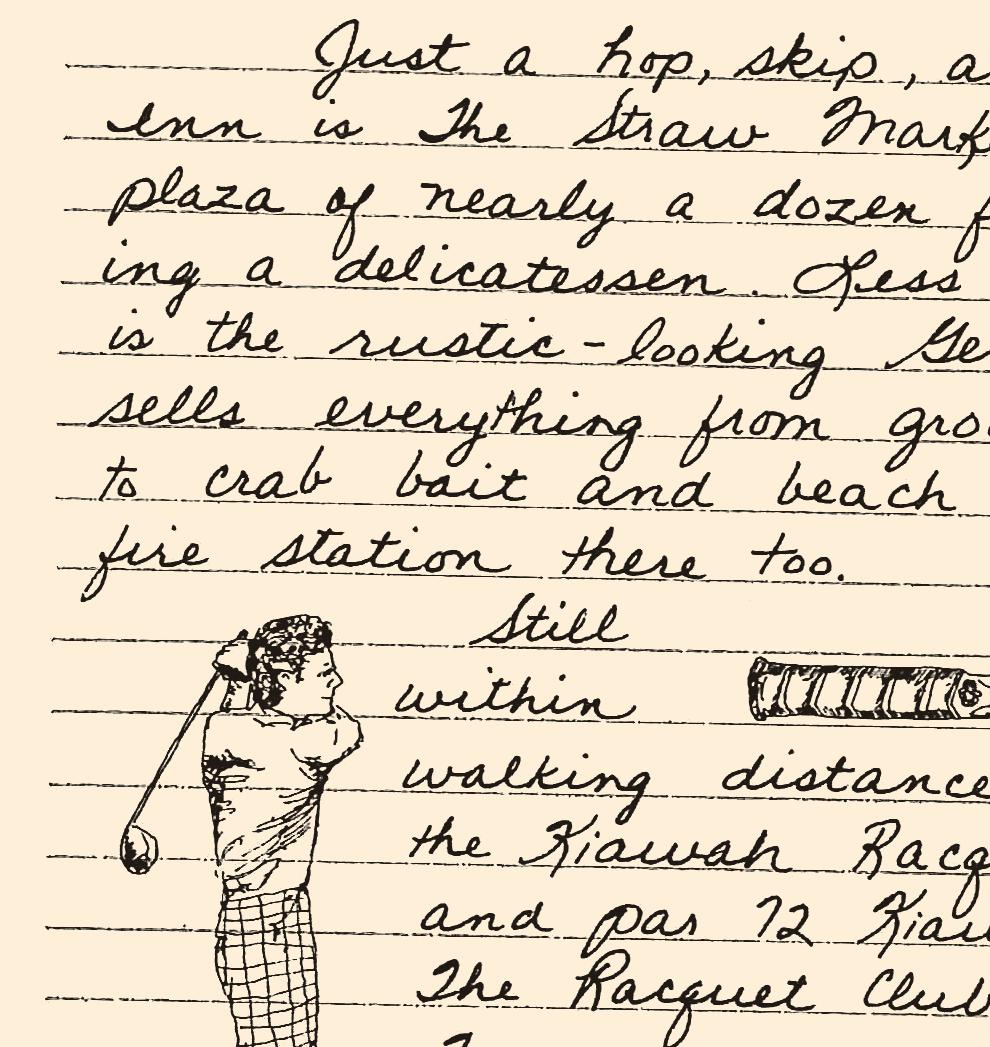 Just a hop, skip, a
Inn is The Straw Mark
plaza of nearly a dozen f
ing a delicatessen. Less
is the rustic-looking Ge
sells everything from gro
to crab bait and beach
fire station there too.
Still
within
walking distance
the Kiawah Racq
and par 72 Kiaw
The Racquet Club